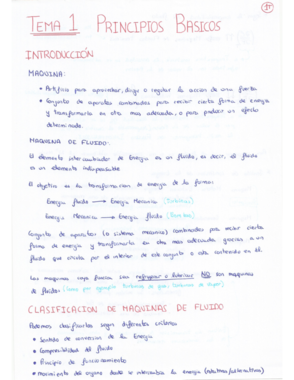 TEMA 1 PRINCIPIOS BASICOS
INTRODUCCIÓN
MAQUINA:
• Artificio para aprovechar, dirigir o regular la acción de una fuerza
• Conjunto de aparatos combinados para recibir cierta forma de energía
y transformarla en otra mas adecuada, o para producir un efecto
determinado.
MAQUINA DE FLUIDO:
El elemento intercambiador de Energía es un fluido, es decir, el fluido
es un elemento indispensable
El objetivo es la transformación de energía de la forma:
Energía fluido → Energía Mecanica (Turbinas)
Energía Mecanica → Energía fluido (Bombas)
Conjunto de aparatos (o sistema mecanico) combinados para recibir cierta
forma de energía y transformarla en otra mas adecuada gracias a un
fluido que circula por el interior de este conjunto o esta contenido en el.
Las maquinas cuya funcion sea refrigerar o lubricar NO son maquinas
de fluido.
CLASIFICACION DE MAQUINAS DE FLUIDO
Podemos clasificarlas segun diferentes criterios:
• Sentido de conversion de la Energía
• Compresibilidad del fluido
• Principio de funcionamiento
• Movimiento del organo donde se intercambia la energía (rotativas/alternativas)